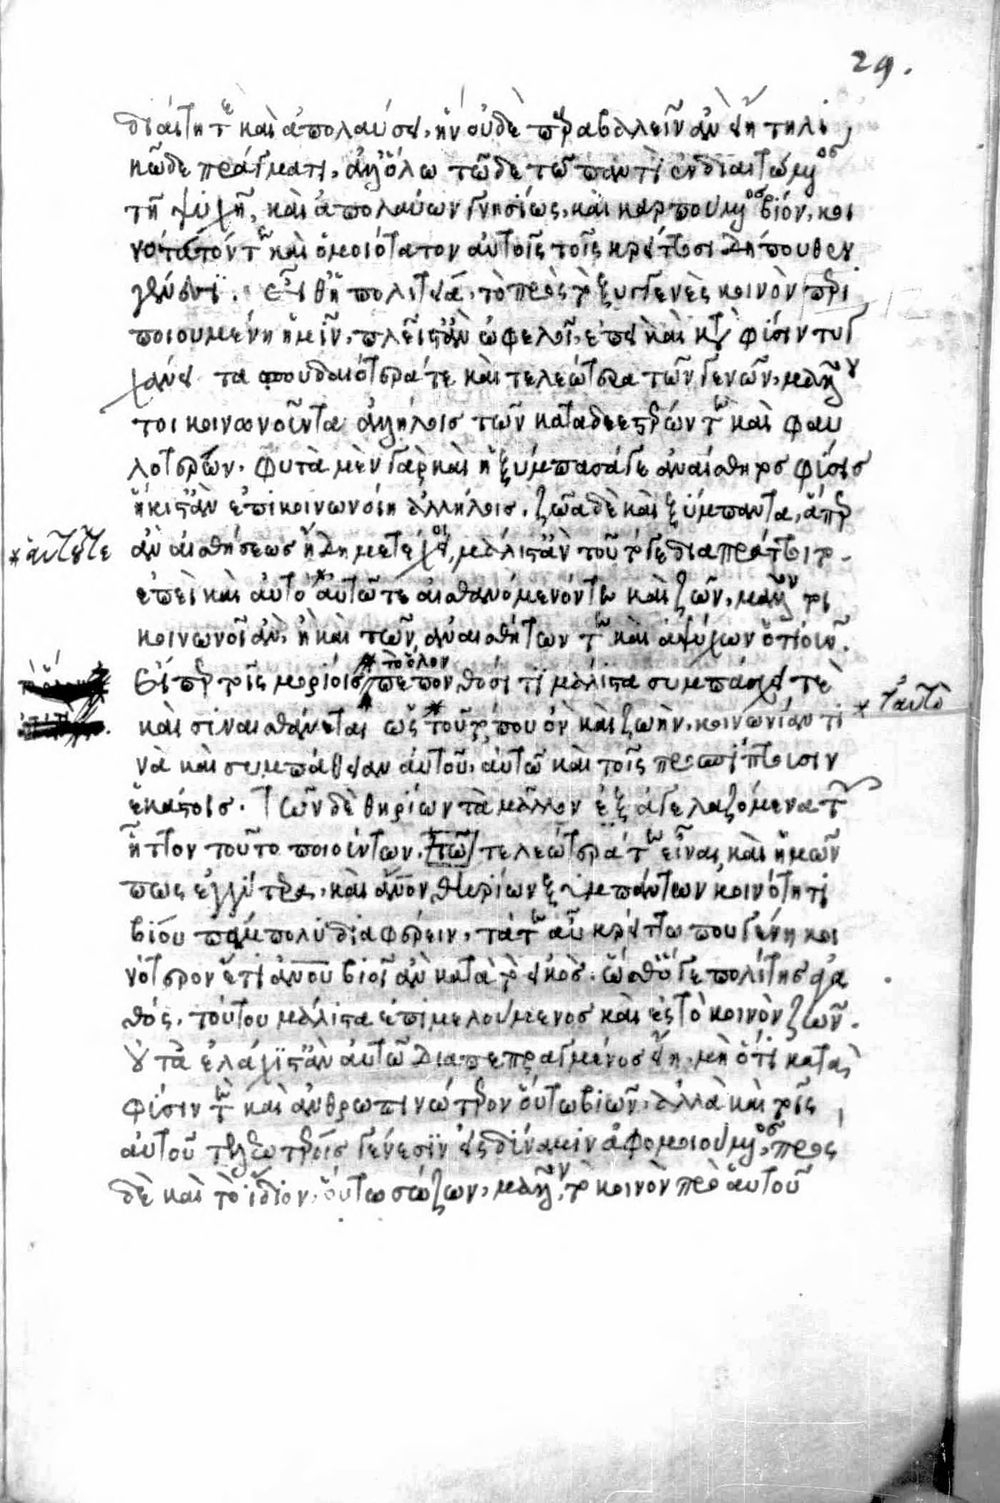 29.
διαίτη τε καὶ ἀπολαύσει, ἣν οὐδὲ παραβαλεῖν ἂν εἴη τηλι
κῷδε πράγματι, ἀλλ' ὅλῳ τῷδε τῷ παντὶ ἐνδιαιτώμενος
τῇ ψυχῇ, καὶ ἀπολαύων γνησίως, καὶ καρπούμενος βίον, κοι
νότατόν τε καὶ ὁμοιότατον αὐτοῖς τοῖς κρείττοσι δήπουθεν
γένεσι. πολιτεία, τὸ πρὸς τὸ ξυγγενὲς κοινὸν περι
ποιουμένη ἡμῖν, πλεῖστ' ἂν ὠφελοῖ, ἐπεὶ καὶ κατὰ φύσιν τυγ
χάνει τὰ σπουδαιότερά τε καὶ τελεώτερα τῶν γενῶν, μᾶλλόν
τοι κοινωνοῦντα ἀλλήλοις τῶν καταδεεστέρων τε καὶ φαυ
λοτέρων. φυτὰ μὲν γὰρ καὶ ἡ ξύμπασά γε ἀναίσθητος φύσις
ἥκιστ' ἂν ἐπικοινωνοίη ἀλλήλοις. ζῶα δὲ καὶ ξύμπαντα, ἅπερ
ἂν αἰσθήσεως ἤδη μετέχοι, μάλιστ' ἂν τοῦτό γε διαπράττοιτο.
ἐπεὶ καὶ αὐτὸ αὑτῷ τε αἰσθανόμενόν τῳ καὶ ζῶν, μᾶλλόν τι
κοινωνοῖ ἂν, ἢ καὶ τῶν ἀναισθήτων τε καὶ ἀψύχων ὁτιοῦν.
Εἴπερ τοῖς μορίοις τὸ ὅλον πεπονθόσί τι μάλιστα συμπάσχει τὲ
καὶ συναισθάνεται ὡς τοῦτό που ὂν καὶ ζωὴν, κοινωνίαν τι
νὰ καὶ συμπάθειαν αὐτοῦ, αὑτῷ καὶ τοῖς προσπίπτουσιν
ἑκάστοις. Τῶν δὲ θηρίων τὰ μᾶλλον ἀγελαζόμενα τῶν
ἧττον τοῦτο ποιούντων, τελεώτερά τε εἶναι, καὶ ἡμῶν
πως ἐγγύτερα, καὶ θηρίων ξυμπάντων κοινότητι
βίου πάμπολυ διαφέρειν, τά τε αὖ κρείττω που γένη κοι
νότερον ἔτι βιοῖ ἂν κατὰ τὸ εἰκὸς. πολίτης ἀγα
θός, τούτου μάλιστα ἐπιμελούμενος καὶ ἐς τὸ κοινὸν ζῶν.
οὐ τὰ ἐλάχιστ' ἂν αὑτῷ διαπεπραγμένος εἴη, μὴ ὅτι κατὰ
φύσιν τε καὶ ἀνθρωπινώτερον οὕτω βιῶν, ἀλλὰ καὶ τοῖς
αὑτοῦ τελεωτέροις γένεσιν εἰς δύναμιν ἀφομοιούμενος, πρὸς
δὲ καὶ τὸ ἴδιον, οὕτω σώζων, μᾶλλον τὸ κοινὸν πρὸ αὑτοῦ